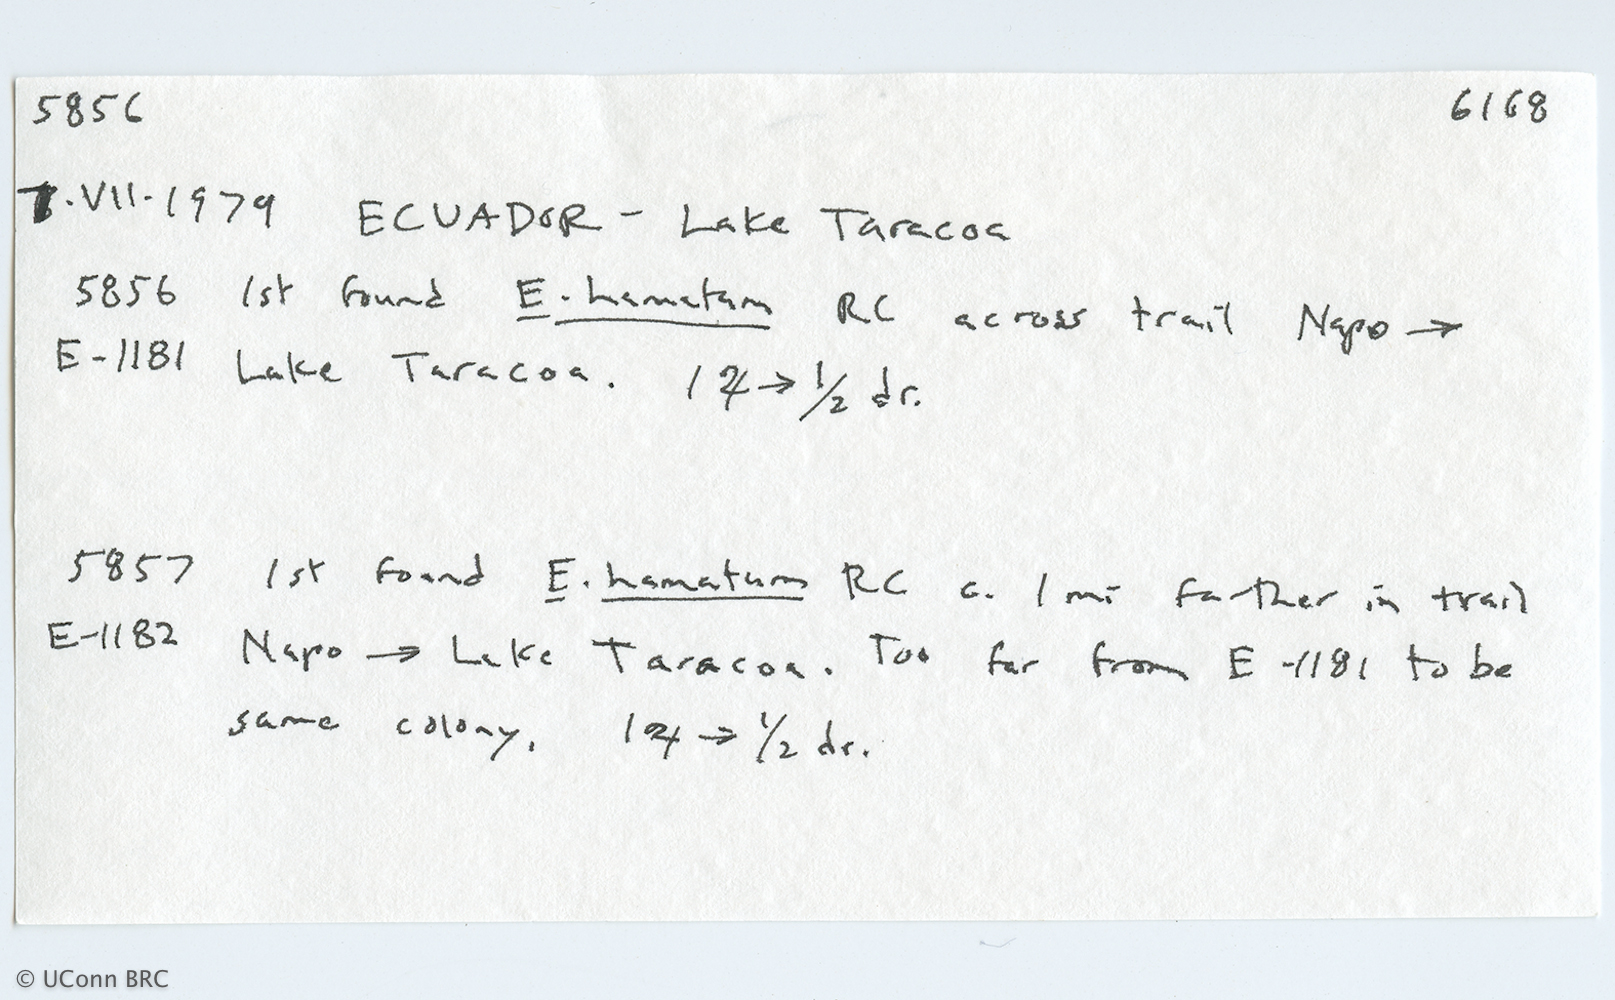 5856 6168
7.VII.1979 ECUADOR - Lake Taracoa
5856 1st found E. hamatum RC across trail Napo →
E-1181 Lake Taracoa. 1♃→ 1/2 dr.
5857 1st found E. hamatum RC c. 1 mi farther in trail
E-1182 Napo → Lake Taracoa. Too far from E-1181 to be
same colony. 1♃→ 1/2 dr.
© UConn BRC